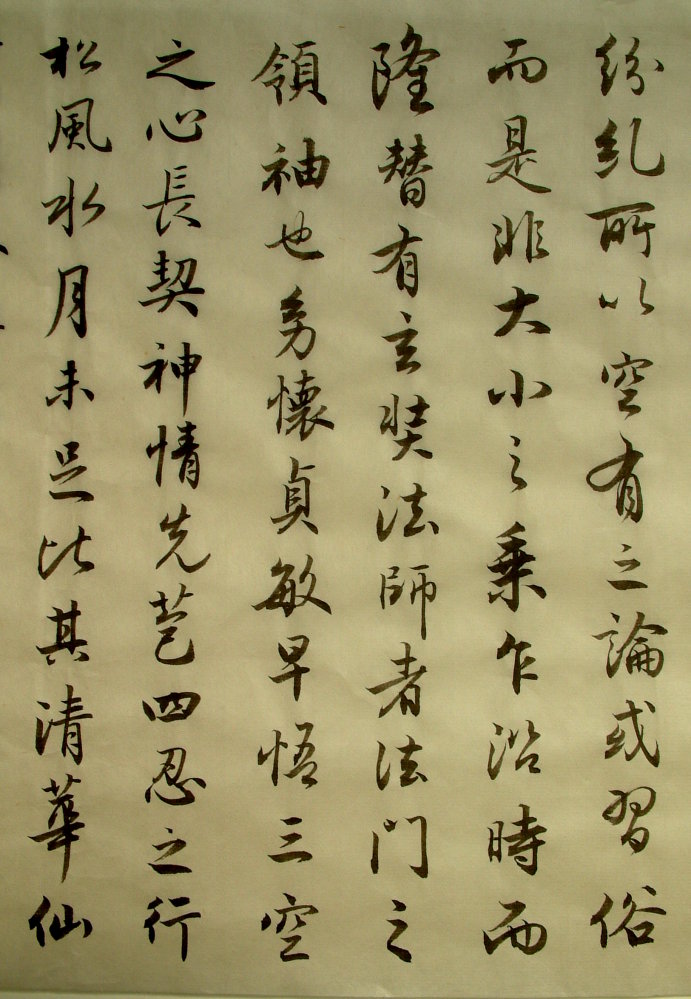 紛糺所以空有之論或習俗
而是非大小之乗乍沿時而
隆替有玄奘法師者法門之
領袖也㓜懷貞敏早悟三空
之心長契神情先苞四忍之行
松風水月未足比其清華仙